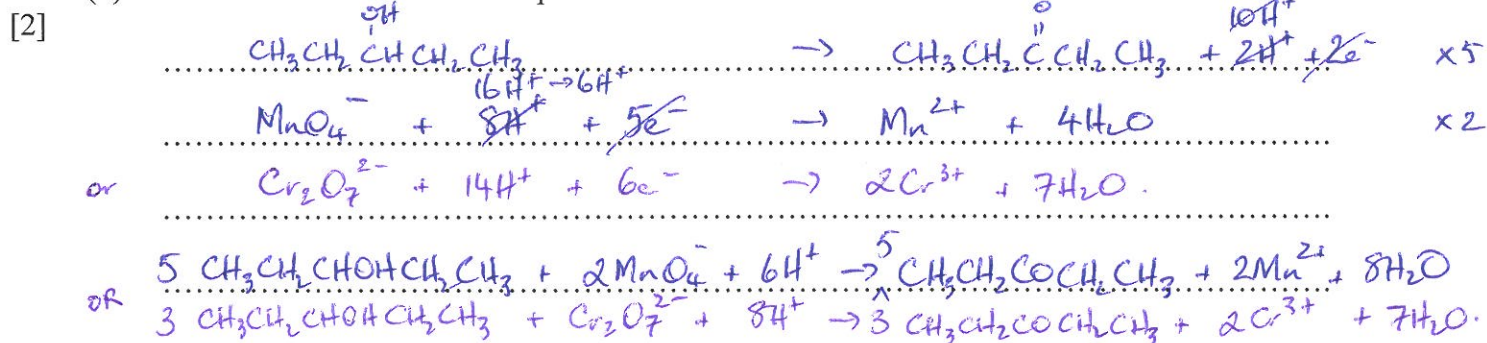 [2]
OH
O
10H⁺
CH₃CH₂CHCH₂CH₃ → CH₃CH₂CCH₂CH₃ + 2H⁺ + 2e⁻ ×5
16H⁺ → 6H⁺
MnO₄⁻ + 8H⁺ + 5e⁻ → Mn²⁺ + 4H₂O ×2
or Cr₂O₇²⁻ + 14H⁺ + 6e⁻ → 2Cr³⁺ + 7H₂O.
5 CH₃CH₂CHOHCH₂CH₃ + 2MnO₄⁻ + 6H⁺ → 5 CH₃CH₂COCH₂CH₃ + 2Mn²⁺ + 8H₂O
OR 3 CH₃CH₂CHOHCH₂CH₃ + Cr₂O₇²⁻ + 8H⁺ → 3 CH₃CH₂COCH₂CH₃ + 2Cr³⁺ + 7H₂O.